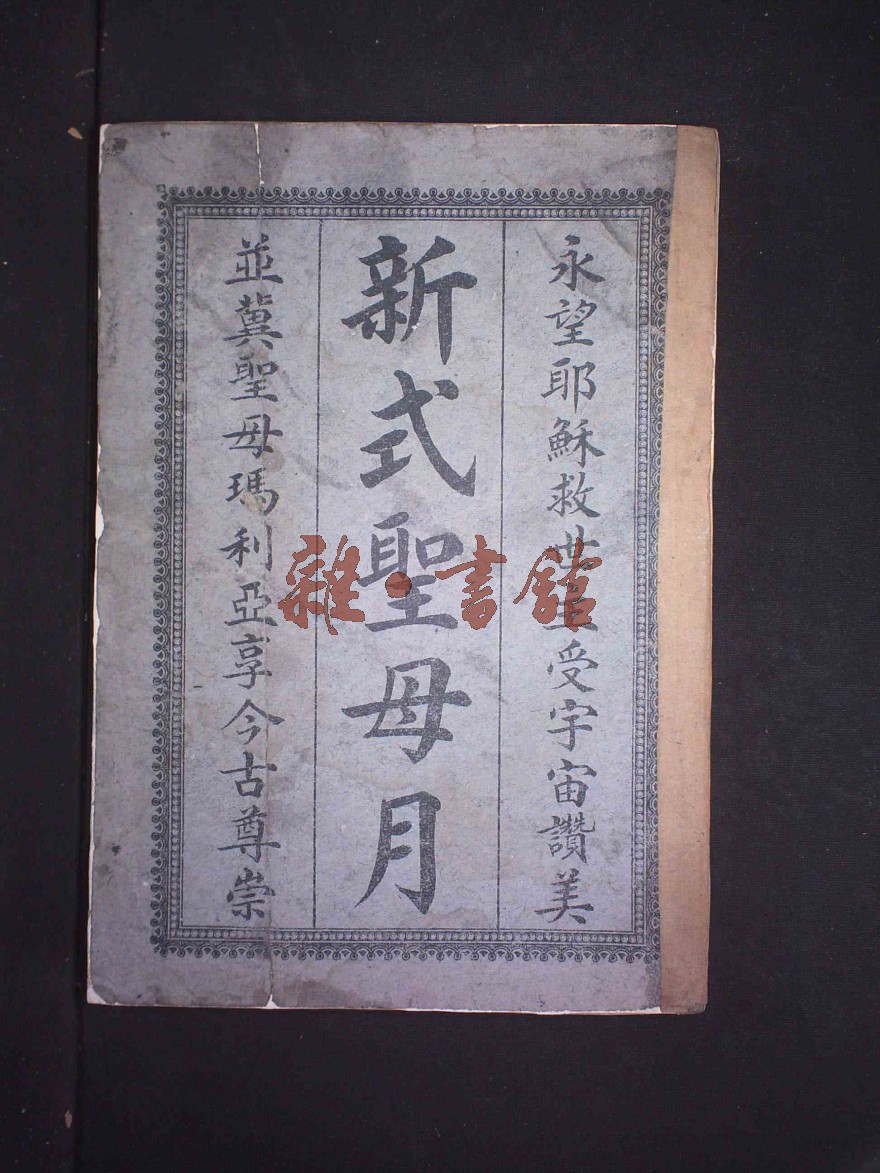 永望耶穌救世主受宇宙讚美
新式聖母月
並冀聖母瑪利亞享今古尊崇
雜·書館